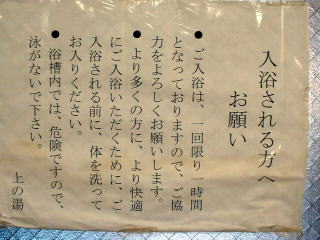 入浴される方へ
お願い
●ご入浴は、一回限り一時間
となっておりますので、ご協
力をよろしくお願いします。
●より多くの方に、より快適
にご入浴いただくために、ご
入浴される前に、体を洗って
お入りください。
●浴槽内では、危険ですので、
泳がないで下さい。
上の湯